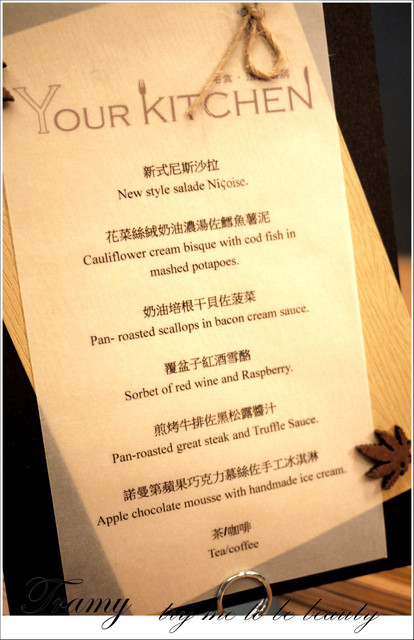 YOUR KITCHEN
新式尼斯沙拉
New style salade Niçoise.
花菜絲絨奶油濃湯佐鱈魚薯泥
Cauliflower cream bisque with cod fish in
mashed potapoes.
奶油培根干貝佐菠菜
Pan- roasted scallops in bacon cream sauce.
覆盆子紅酒雪酪
Sorbet of red wine and Raspberry.
煎烤牛排佐黑松露醬汁
Pan-roasted great steak and Truffle Sauce.
諾曼第蘋果巧克力慕絲佐手工冰淇淋
Apple chocolate mousse with handmade ice cream.
茶/咖啡
Tea/coffee
Tramy try me to be beauty